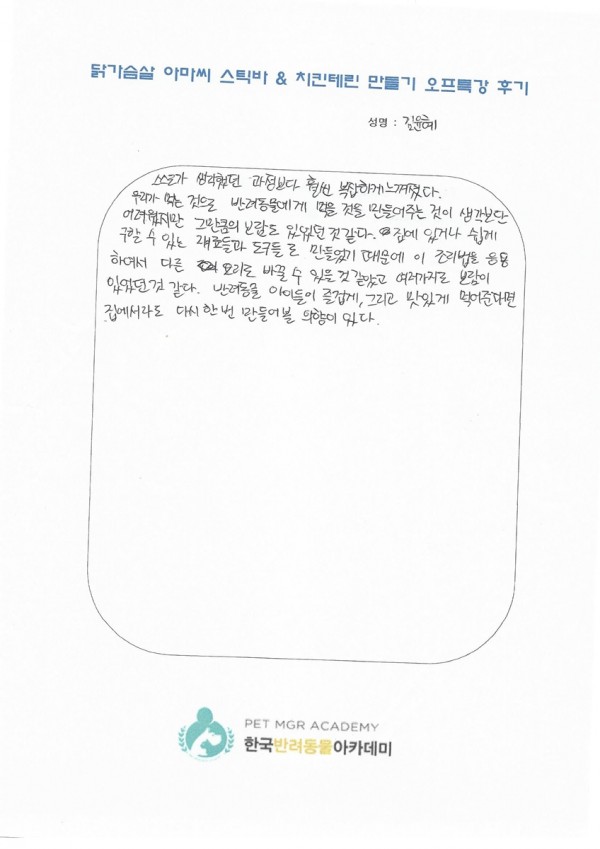 닭가슴살 아마씨 스틱바 & 치킨테린 만들기 오프특강 후기
성명 : 김윤혜
스스로가 생각했던 과정보다 훨씬 복잡하게 느껴졌다.
우리가 먹는 것으로 반려동물에게 먹을 것을 만들어주는 것이 생각보단
어려웠지만 그만큼의 보람도 있었던 것 같다. 집에 있거나 쉽게
구할 수 있는 재료들과 도구들로 만들었기 때문에 이 조리법을 응용
하여서 다른 요리로 바꿀 수 있을 것 같았고 여러가지로 보람이
있었던 것 같다. 반려동물 아이들이 즐겁게, 그리고 맛있게 먹어준다면
집에서라도 다시 한 번 만들어볼 의향이 있다.
PET MGR ACADEMY
한국반려동물아카데미